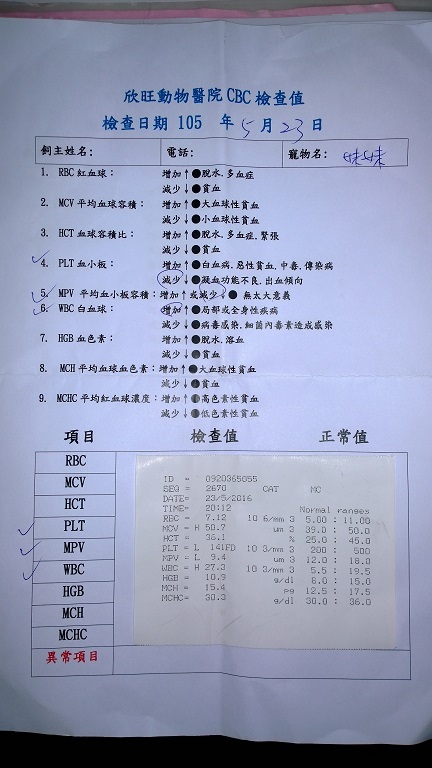 欣旺動物醫院 CBC 檢查值
檢查日期 105 年 5 月 23 日
飼主姓名: 電話: 寵物名: 妹妹
1. RBC 紅血球: 增加↑●脫水.多血症
減少↓●貧血
2. MCV 平均血球容積: 增加↑●大血球性貧血
減少↓●小血球性貧血
3. HCT 血球容積比: 增加↑●脫水.多血症.緊張
減少↓●貧血
4. PLT 血小板: 增加↑●白血病.惡性貧血.中毒.傳染病
減少↓●凝血功能不良.出血傾向
5. MPV 平均血小板容積: 增加↑或減少↓● 無太大意義
6. WBC 白血球: 增加↑●局部或全身性疾病
減少↓●病毒感染.細菌內毒素造成感染
7. HGB 血色素: 增加↑●脫水.溶血
減少↓●貧血
8. MCH 平均血球血色素: 增加↑●大血球性貧血
減少↓●貧血
9. MCHC 平均紅血球濃度: 增加↑●高色素性貧血
減少↓●低色素性貧血
項目 檢查值 正常值
RBC
MCV
HCT
PLT
MPV
WBC
HGB
MCH
MCHC
異常項目
ID = 0920365055
SEQ = 2670 CAT MC
DATE= 23/5/2016
TIME= 20:12 Normal ranges
RBC = 7.12 10 6/mm 3 5.00 : 11.00
MCV = H 50.7 um 3 39.0 : 50.0
HCT = 36.1 % 25.0 : 45.0
PLT = L 141FD 10 3/mm 3 200 : 500
MPV = L 9.4 um 3 12.0 : 18.0
WBC = H 27.3 10 3/mm 3 5.5 : 19.5
HGB = 10.9 g/dl 8.0 : 15.0
MCH = 15.4 pg 12.5 : 17.5
MCHC= 30.3 g/dl 30.0 : 36.0